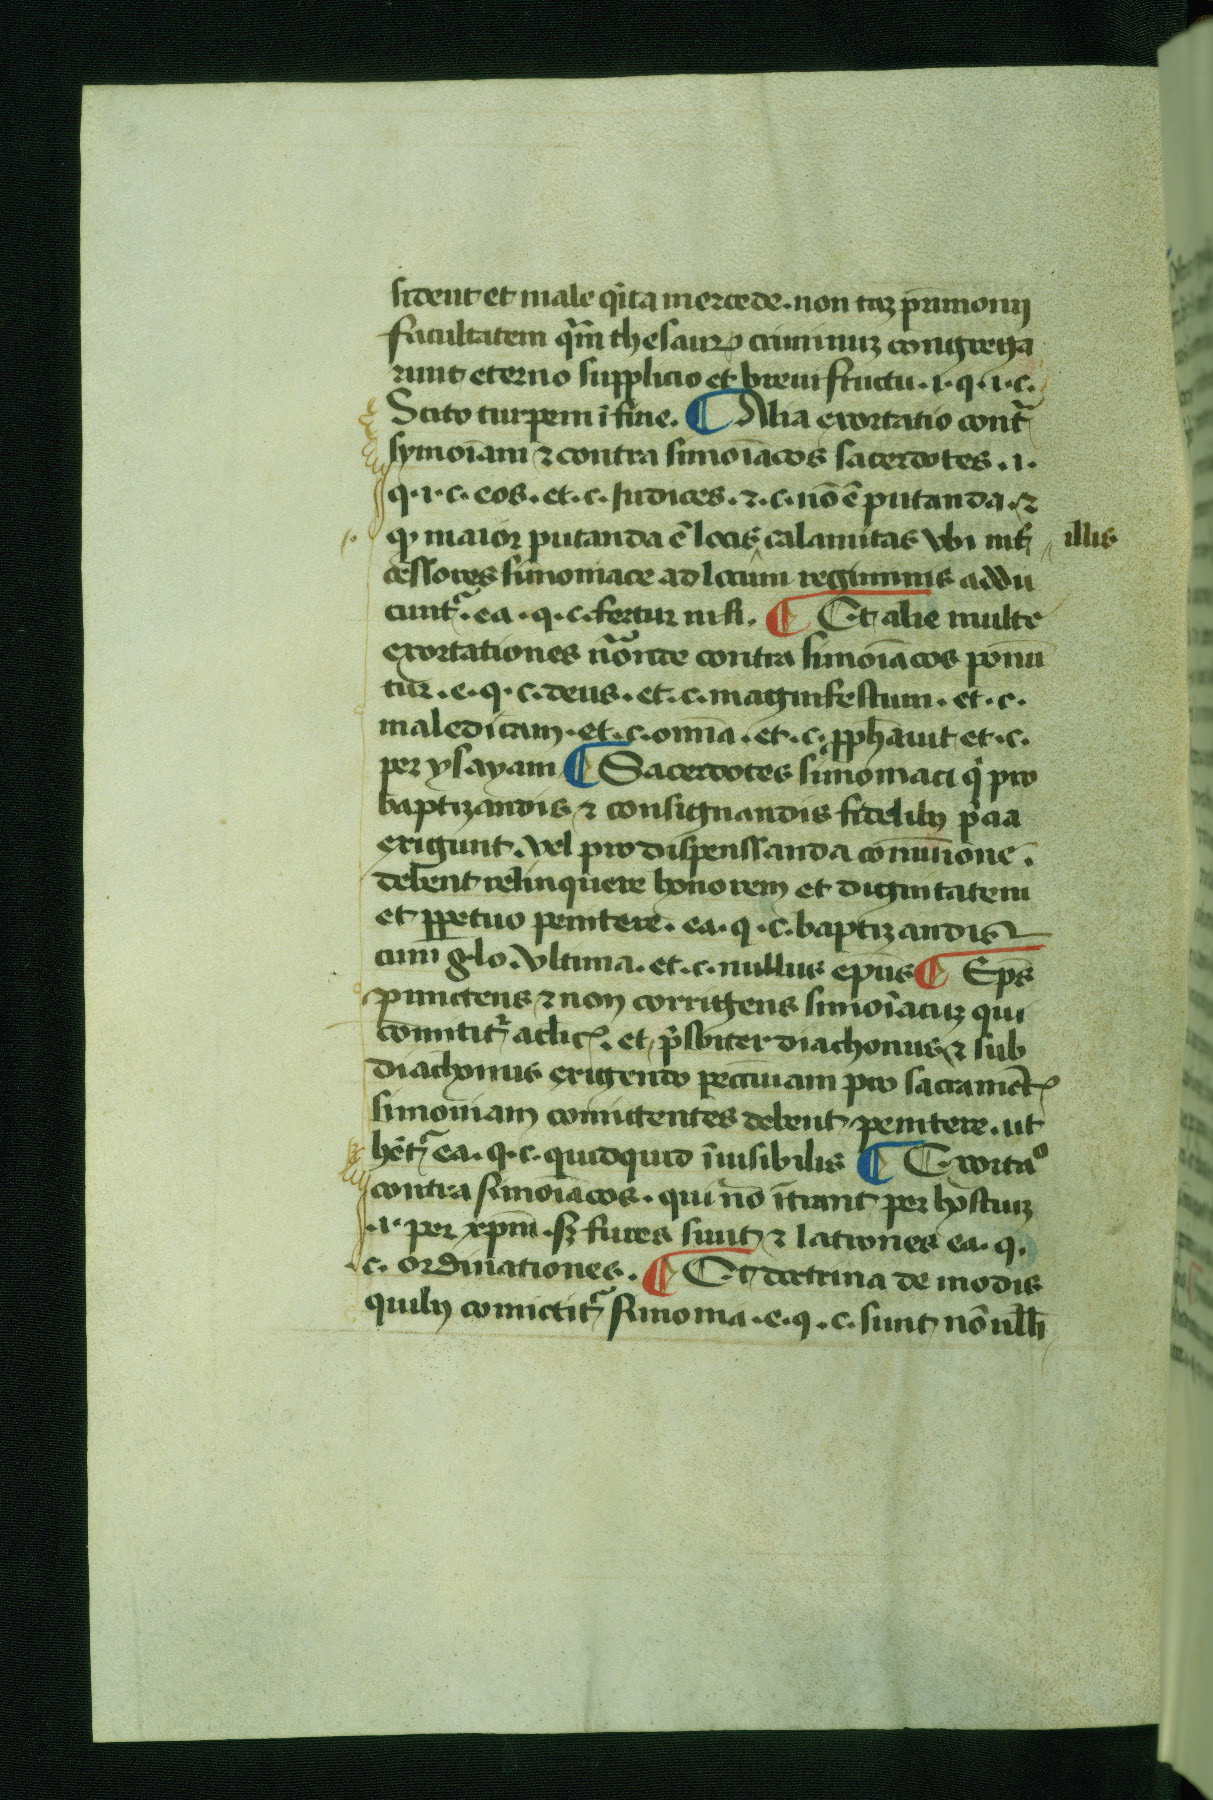 sident et male q̇ita mercede. non taʒ pr̄imonij
facultatem q̄m thesauꝝ criminuʒ congrega
runt eterno supplicio et breui fructu. i. q. i. c.
Scito turpem ī fine. ¶ Alia exortatio cont̄ᵃ
symoīam ⁊ contra simoīacos sacerdotes. i.
q. i. c. eos. et. c. Iudices. ⁊. c. nō ē putanda. ⁊
ꝙ maior putanda ē locis calamitas vbi int̄
illis
cessores simoniace ad locum regiminis addu
cunt᷑. ea. q. c. fertur nisi. ¶ Et alie multe
exortationes contra simoīacos ponū
tur. e. q. c. deus. et. c. magnifestum. et. c.
maledicam. et. c. omīa. et. c. ꝓph̄auit et. c.
per ysayam ¶ Sacerdotes simoniaci q̇ pro
baptizandis ⁊ consignandis fidelibꝫ p̄cia
exigunt. vel pro dispenssanda comūione.
debent relinquere honorem et dignitatem
et ꝑpetuo penitere. ea. q. c. baptizandis
cum glo. vltima. et. c. nullus ep̄us ¶ Ep̄s
punictens ⁊ non corrigens simoīacuʒ qui
comitit᷑ et p̄sbiter diachonus ⁊ sub
diachonus exigendo pecc̄uiam pro sacramēt
simoniam comictentes debent penitere. ut
hēt᷑ ea. q. c. quidquid īuisibilis ¶ Exortaº
contra simoīacos. qui nō ītrant per hostiuʒ
.i. per xp̄m. sʒ fures sunt ⁊ latrones ea. q.
c. ordinationes. ¶ Et doctrina de modis
quibꝫ comictit᷑ simonia. e. q. c. sunt nōnull̄i